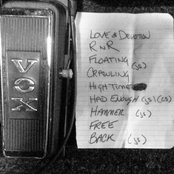 VOX
LOVE & DEVOTION
R N R
FLOATING
CRAWLING (JS)
HIGH TIME
HAD ENOUGH (JS)
HAMMER (JS)
FREE
BACK (JS)